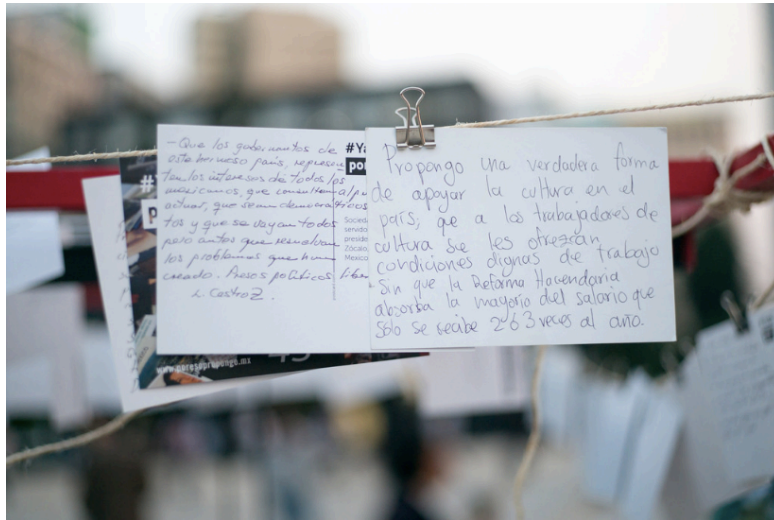 - Que los gobernantes de
este hermoso país, represen
ten los intereses de todos los
mexicanos, que consulten al p
actuar, que sean democráticos
tos y que se vayan todos
pero antes que resuelvan
los problemas que han
creado. Presos políticos libe
L. Castro Z.
#Ya
por
Socieda
servido
preside
Zócalo
Mexico
Propongo una verdadera forma
de apoyar la cultura en el
país, que a los trabajadores de
cultura se les ofrezcan
condiciones dignas de trabajo
sin que la Reforma Hacendaria
absorba la mayoria del salario que
sólo se recibe 2 ó 3 veces al año.
#
p
43
www.poresopropongo.mx